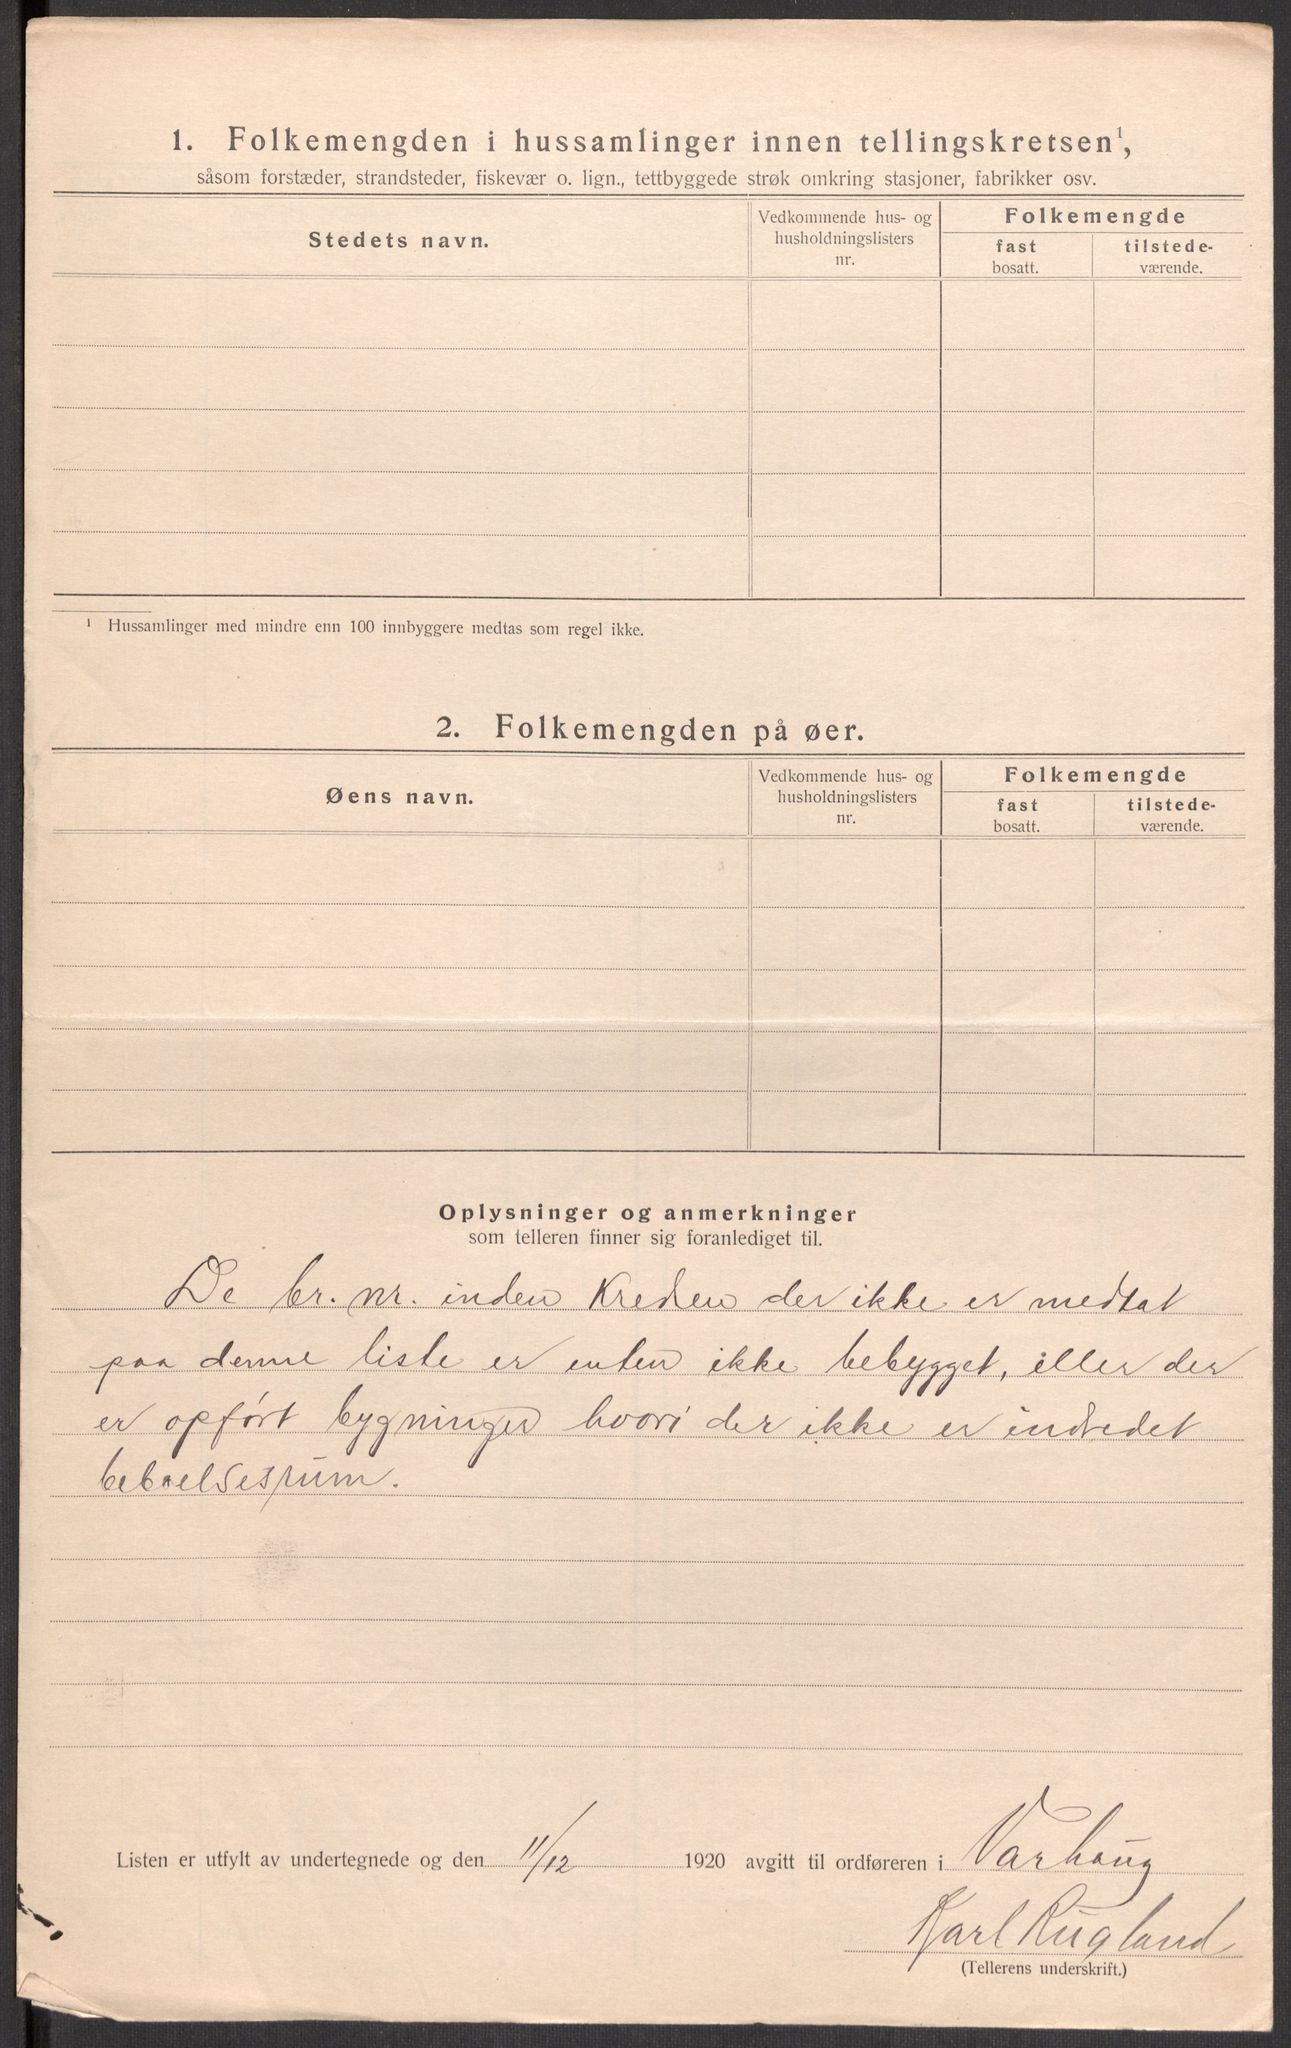 1. Folkemengden i hussamlinger innen tellingskretsen¹,
såsom forstæder, strandsteder, fiskevær o. lign., tettbyggede strøk omkring stasjoner, fabrikker osv.
Stedets navn.
Vedkommende hus- og
husholdningslisters
nr.
Folkemengde
fast
bosatt.
tilstede-
værende.
¹ Hussamlinger med mindre enn 100 innbyggere medtas som regel ikke.
2. Folkemengden på øer.
Øens navn.
Vedkommende hus- og
husholdningslisters
nr.
Folkemengde
fast
bosatt.
tilstede-
værende.
Oplysninger og anmerkninger
som telleren finner sig foranlediget til.
De br. nr. inden Kredsen der ikke er medtat
paa denne liste er enten ikke bebygget, eller der
er opført bygninger hvori der ikke er indredet
beboelsesrum.
Listen er utfylt av undertegnede og den 11/12 1920 avgitt til ordføreren i Varhaug
Karl Rugland
(Tellerens underskrift.)